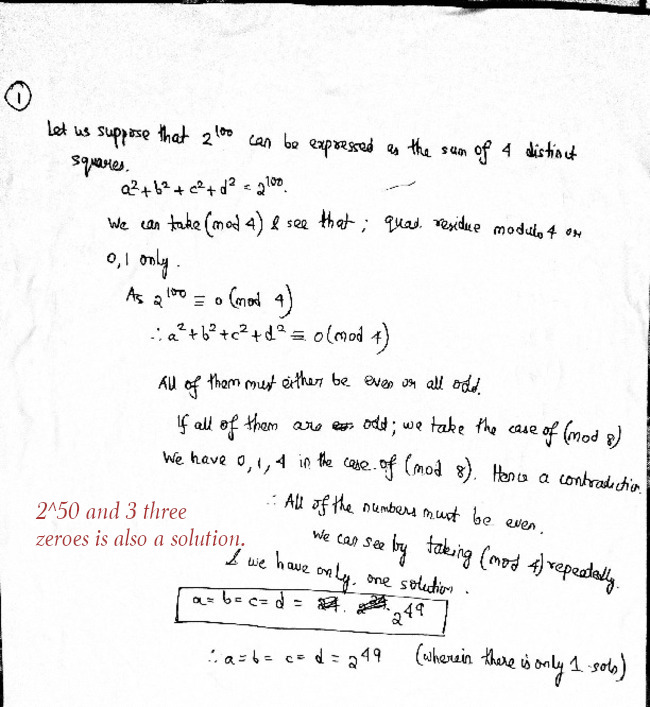 1
Let us suppose that 2^100 can be expressed as the sum of 4 distinct
squares.
a²+b²+c²+d² = 2^100.
We can take (mod 4) & see that ; quad. residue modulo 4 or
0,1 only.
As 2^100 ≡ 0 (mod 4)
∴ a²+b²+c²+d² ≡ 0 (mod 4)
All of them must either be even or all odd.
If all of them are odd; we take the case of (mod 8)
We have 0,1,4 in the case of (mod 8). Hence a contradiction
∴ All of the numbers must be even.
2^50 and 3 three
zeroes is also a solution.
We can see by taking (mod 4) repeatedly.
& we have only one solution.
a = b = c = d = 2^49
∴ a = b = c = d = 2^49 (wherein there is only 1 soln)